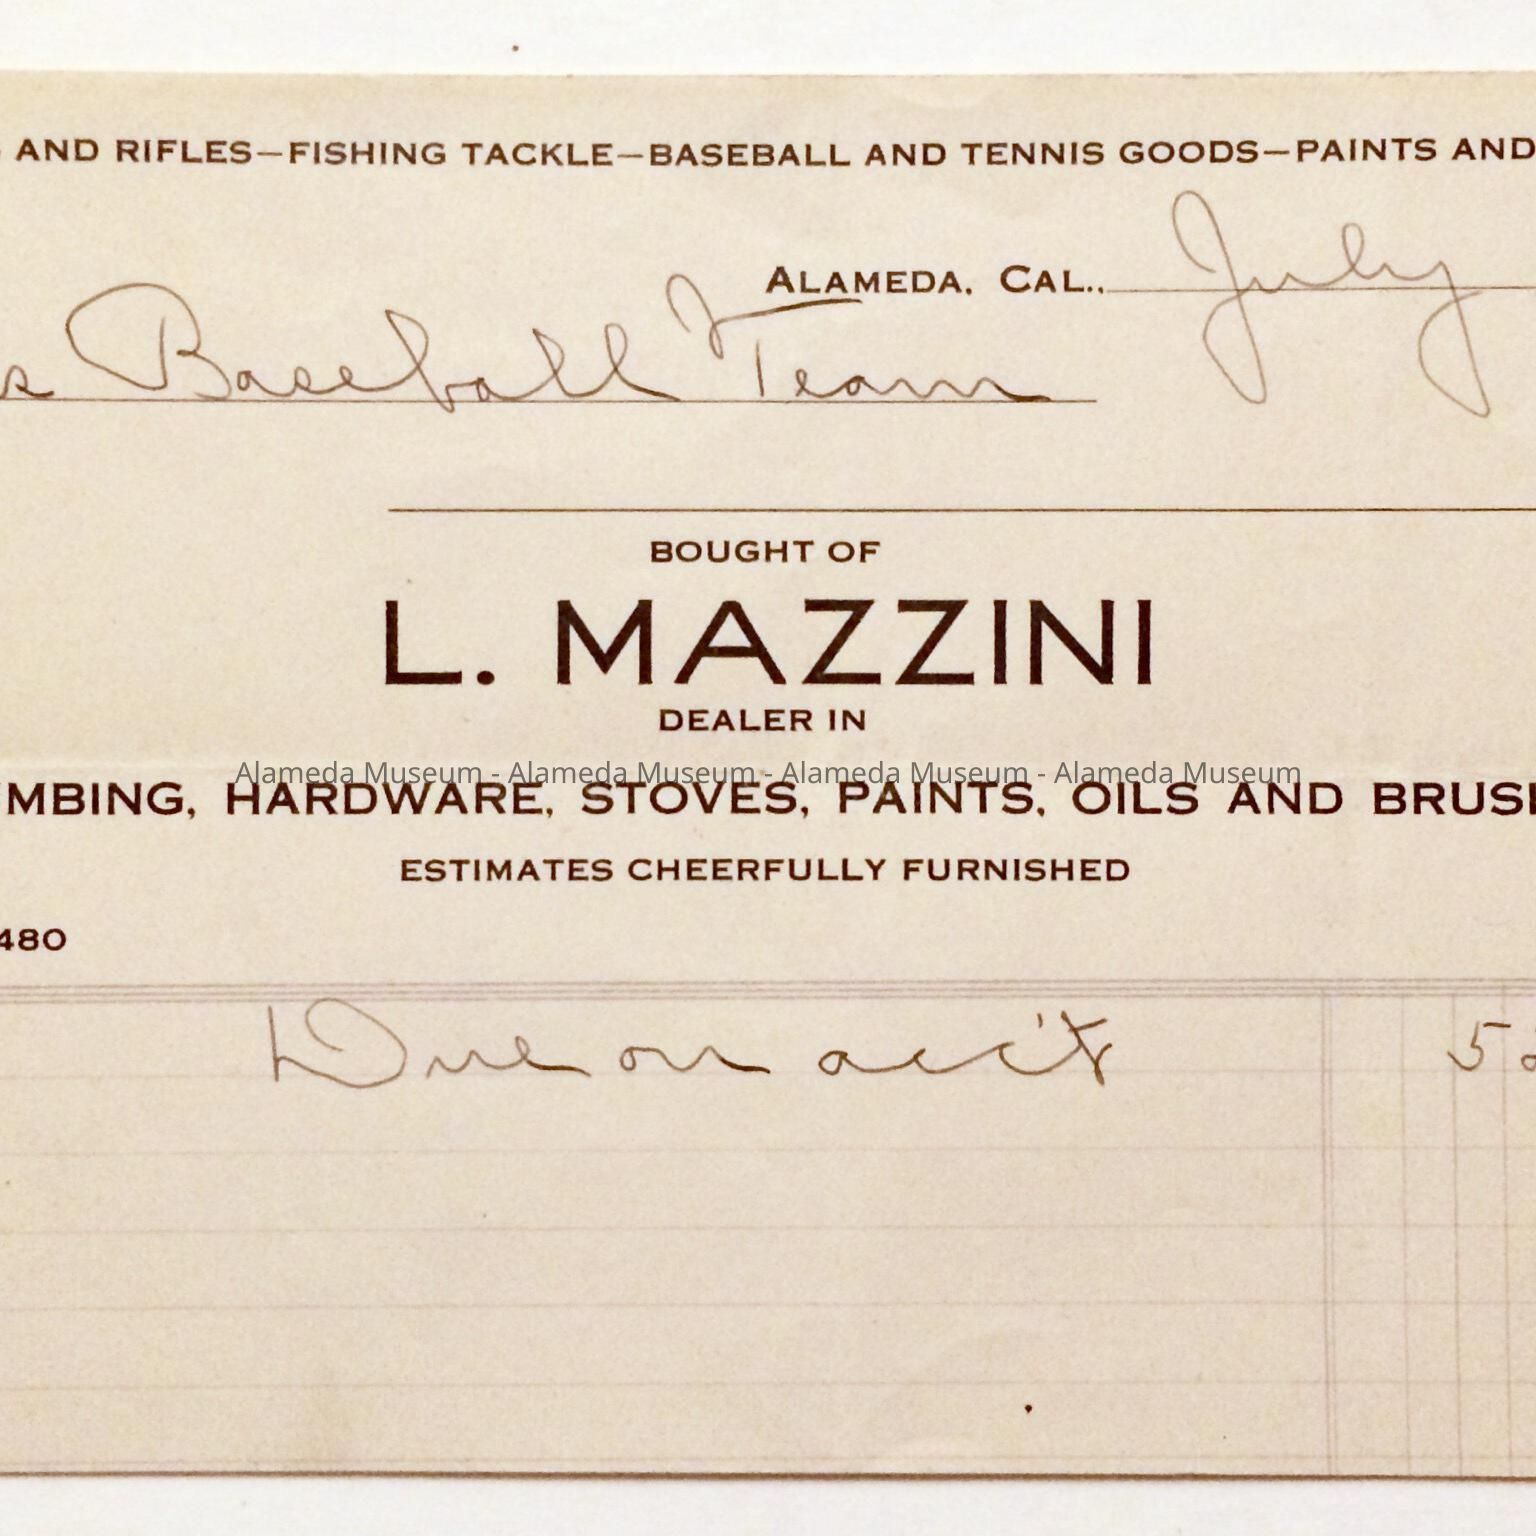 AND RIFLES—FISHING TACKLE—BASEBALL AND TENNIS GOODS—PAINTS AND
ALAMEDA, CAL., July
s Baseball Team
BOUGHT OF
L. MAZZINI
DEALER IN
Alameda Museum - Alameda Museum - Alameda Museum - Alameda Museum
UMBING, HARDWARE, STOVES, PAINTS, OILS AND BRUSH
ESTIMATES CHEERFULLY FURNISHED
480
Due on acc't 5